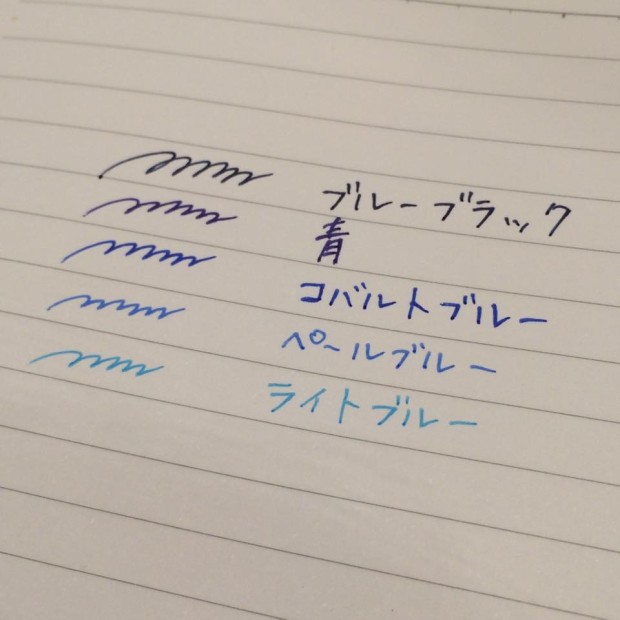 ブルーブラック
青
コバルトブルー
ペールブルー
ライトブルー